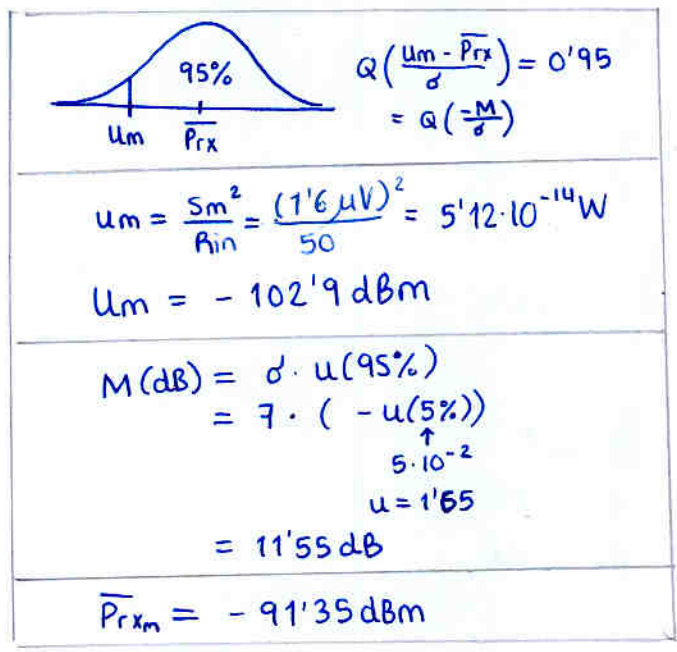 95%
um P̅r̅x̅
Q(um - P̅r̅x̅/σ) = 0'95
= Q(-M/σ)
um = Sm²/Rin = (1'6 μV)²/50 = 5'12·10⁻¹⁴ W
Um = - 102'9 dBm
M (dB) = σ · u(95%)
= 7 · ( - u(5%))
↑
5·10⁻²
u = 1'65
= 11'55 dB
P̅r̅x̅m = - 91'35 dBm